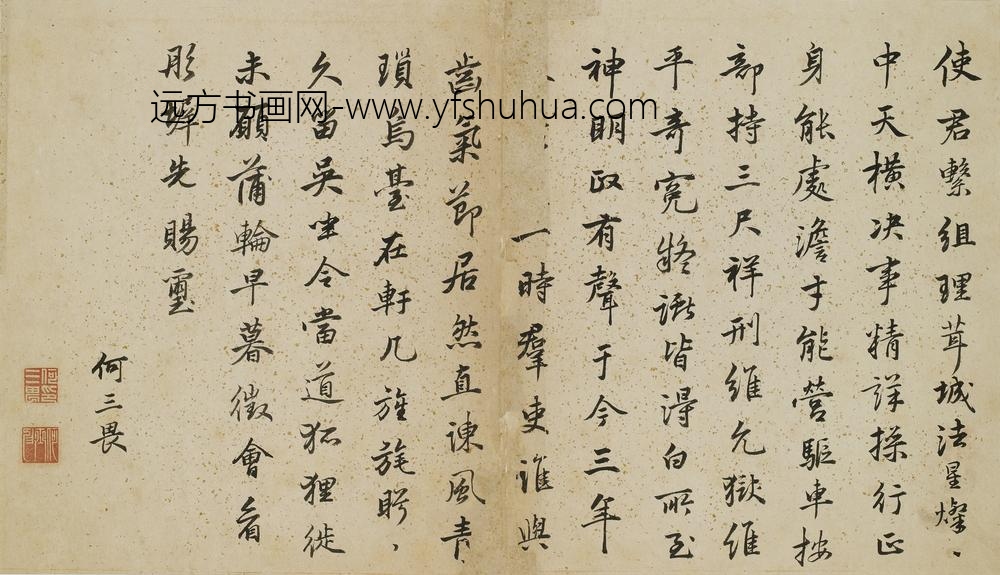 使君繫組理茸城法星燦、
中天横决事精詳操行正
身能處澹才能營驅車按
部持三尺祥刑維允獄維
平奇冤疑讞皆得白所至
神明政有聲于今三年
一時羣吏誰與
齒氣節居然直諫風青
瑣烏臺在軒几旌旄盻、
久留吳坐令當道狐狸徙
未願蒲輪早暮徵會看
彤墀先賜璽
何三畏
远方书画网-www.yfshuhua.com